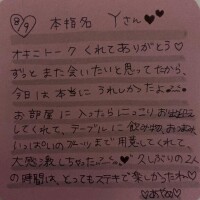 8/9 本指名 Yさん♥♥
オキニトークくれてありがとう♡
ずっとまた会いたいと思ってたから、
今日は本当にうれしかったよ
お部屋に入ったらにっこりお出迎え
してくれて、テーブルに飲み物、
いっぱいのスイーツまで用意してくれて、
大感激しちゃったよ 久しぶりの2人
の時間は、とってもステキで楽しかったわ♡